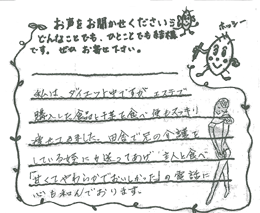 お声をお聞かせください
どんなことでも、ひとことでも結構
です。ぜひ お寄せ下さい。
ホッシー
私は ダイエット中ですが エステで
購入した食品と干芋を食べ 体もスッキリ
痩せてきました。田舎で兄の介護を
している姉にも送ってあげ 主人と食べ
「甘くてやわらかでおいしかった」の電話に
心も和んでおります。